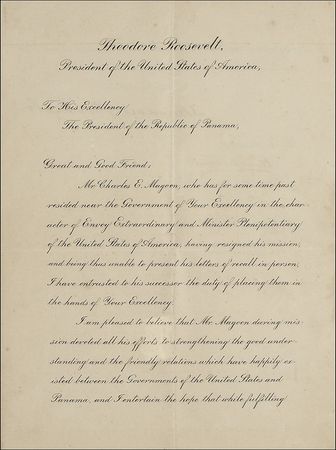 Theodore Roosevelt,
President of the United States of America,
To His Excellency
The President of the Republic of Panama,
Great and Good Friend:
Mr Charles E. Magoon, who has for some time past
resided near the Government of Your Excellency in the char-
acter of Envoy Extraordinary and Minister Plenipotentiary
of the United States of America, having resigned his mission,
and being thus unable to present his letters of recall in person,
I have entrusted to his successor the duty of placing them in
the hands of Your Excellency.
I am pleased to believe that Mr. Magoon during mis-
sion devoted all his efforts to strengthening the good under-
standing and the friendly relations which have happily ex-
isted between the Governments of the United States and
Panama, and I entertain the hope that while fulfilling